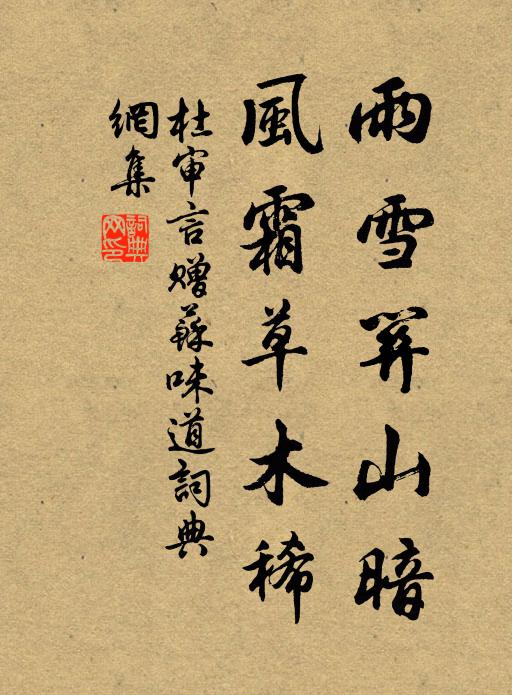 雨雪関山暗
風霜草木稀
杜审言赠蘇味道詞典
網集
詞典
网印